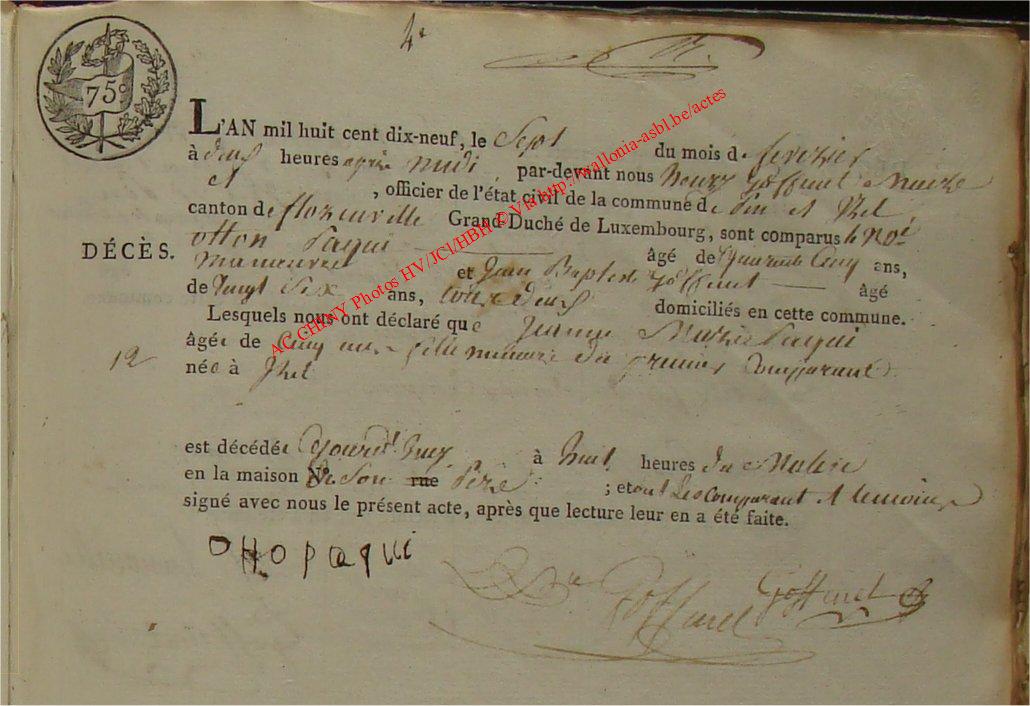 4e
75c
L'AN mil huit cent dix-neuf, le Sept du mois de fevrier
à deux heures après midi, par-devant nous henry Goffinet Maire
et , officier de l'état civil de la commune de Pin et Izel,
canton de florenville Grand-Duché de Luxembourg, sont comparus
otton Paqui âgé de quarante Cinq ans,
DÉCÈS.
manœuvre et Jean Baptiste Goffinet âgé
de Vingt Six ans, tous deux domiciliés en cette commune.
Lesquels nous ont déclaré que Jeanne Marie Paqui
âgée de Cinq ans fille mineure du premier Comparant
12
née à Izel
est décédée aujourd'huy à huit heures du Matin
en la maison de Son rue Père ; et ont Les Comparant et temoins
signé avec nous le présent acte, après que lecture leur en a été faite.
otto paqui
Goffinet
Goffinet
AC CHINY Photos HV/JCl/HBH © Via http://wallonia-asbl.be/actes